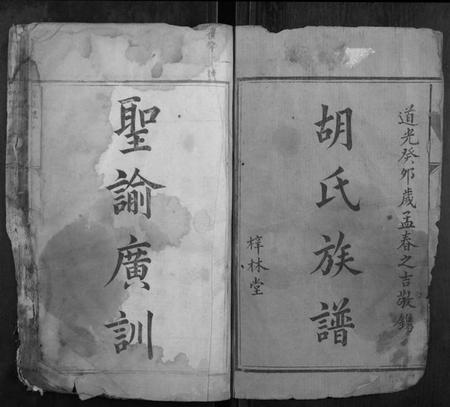 道光癸卯歲孟春之吉敬鐫
胡氏族譜
梓林堂
聖諭廣訓